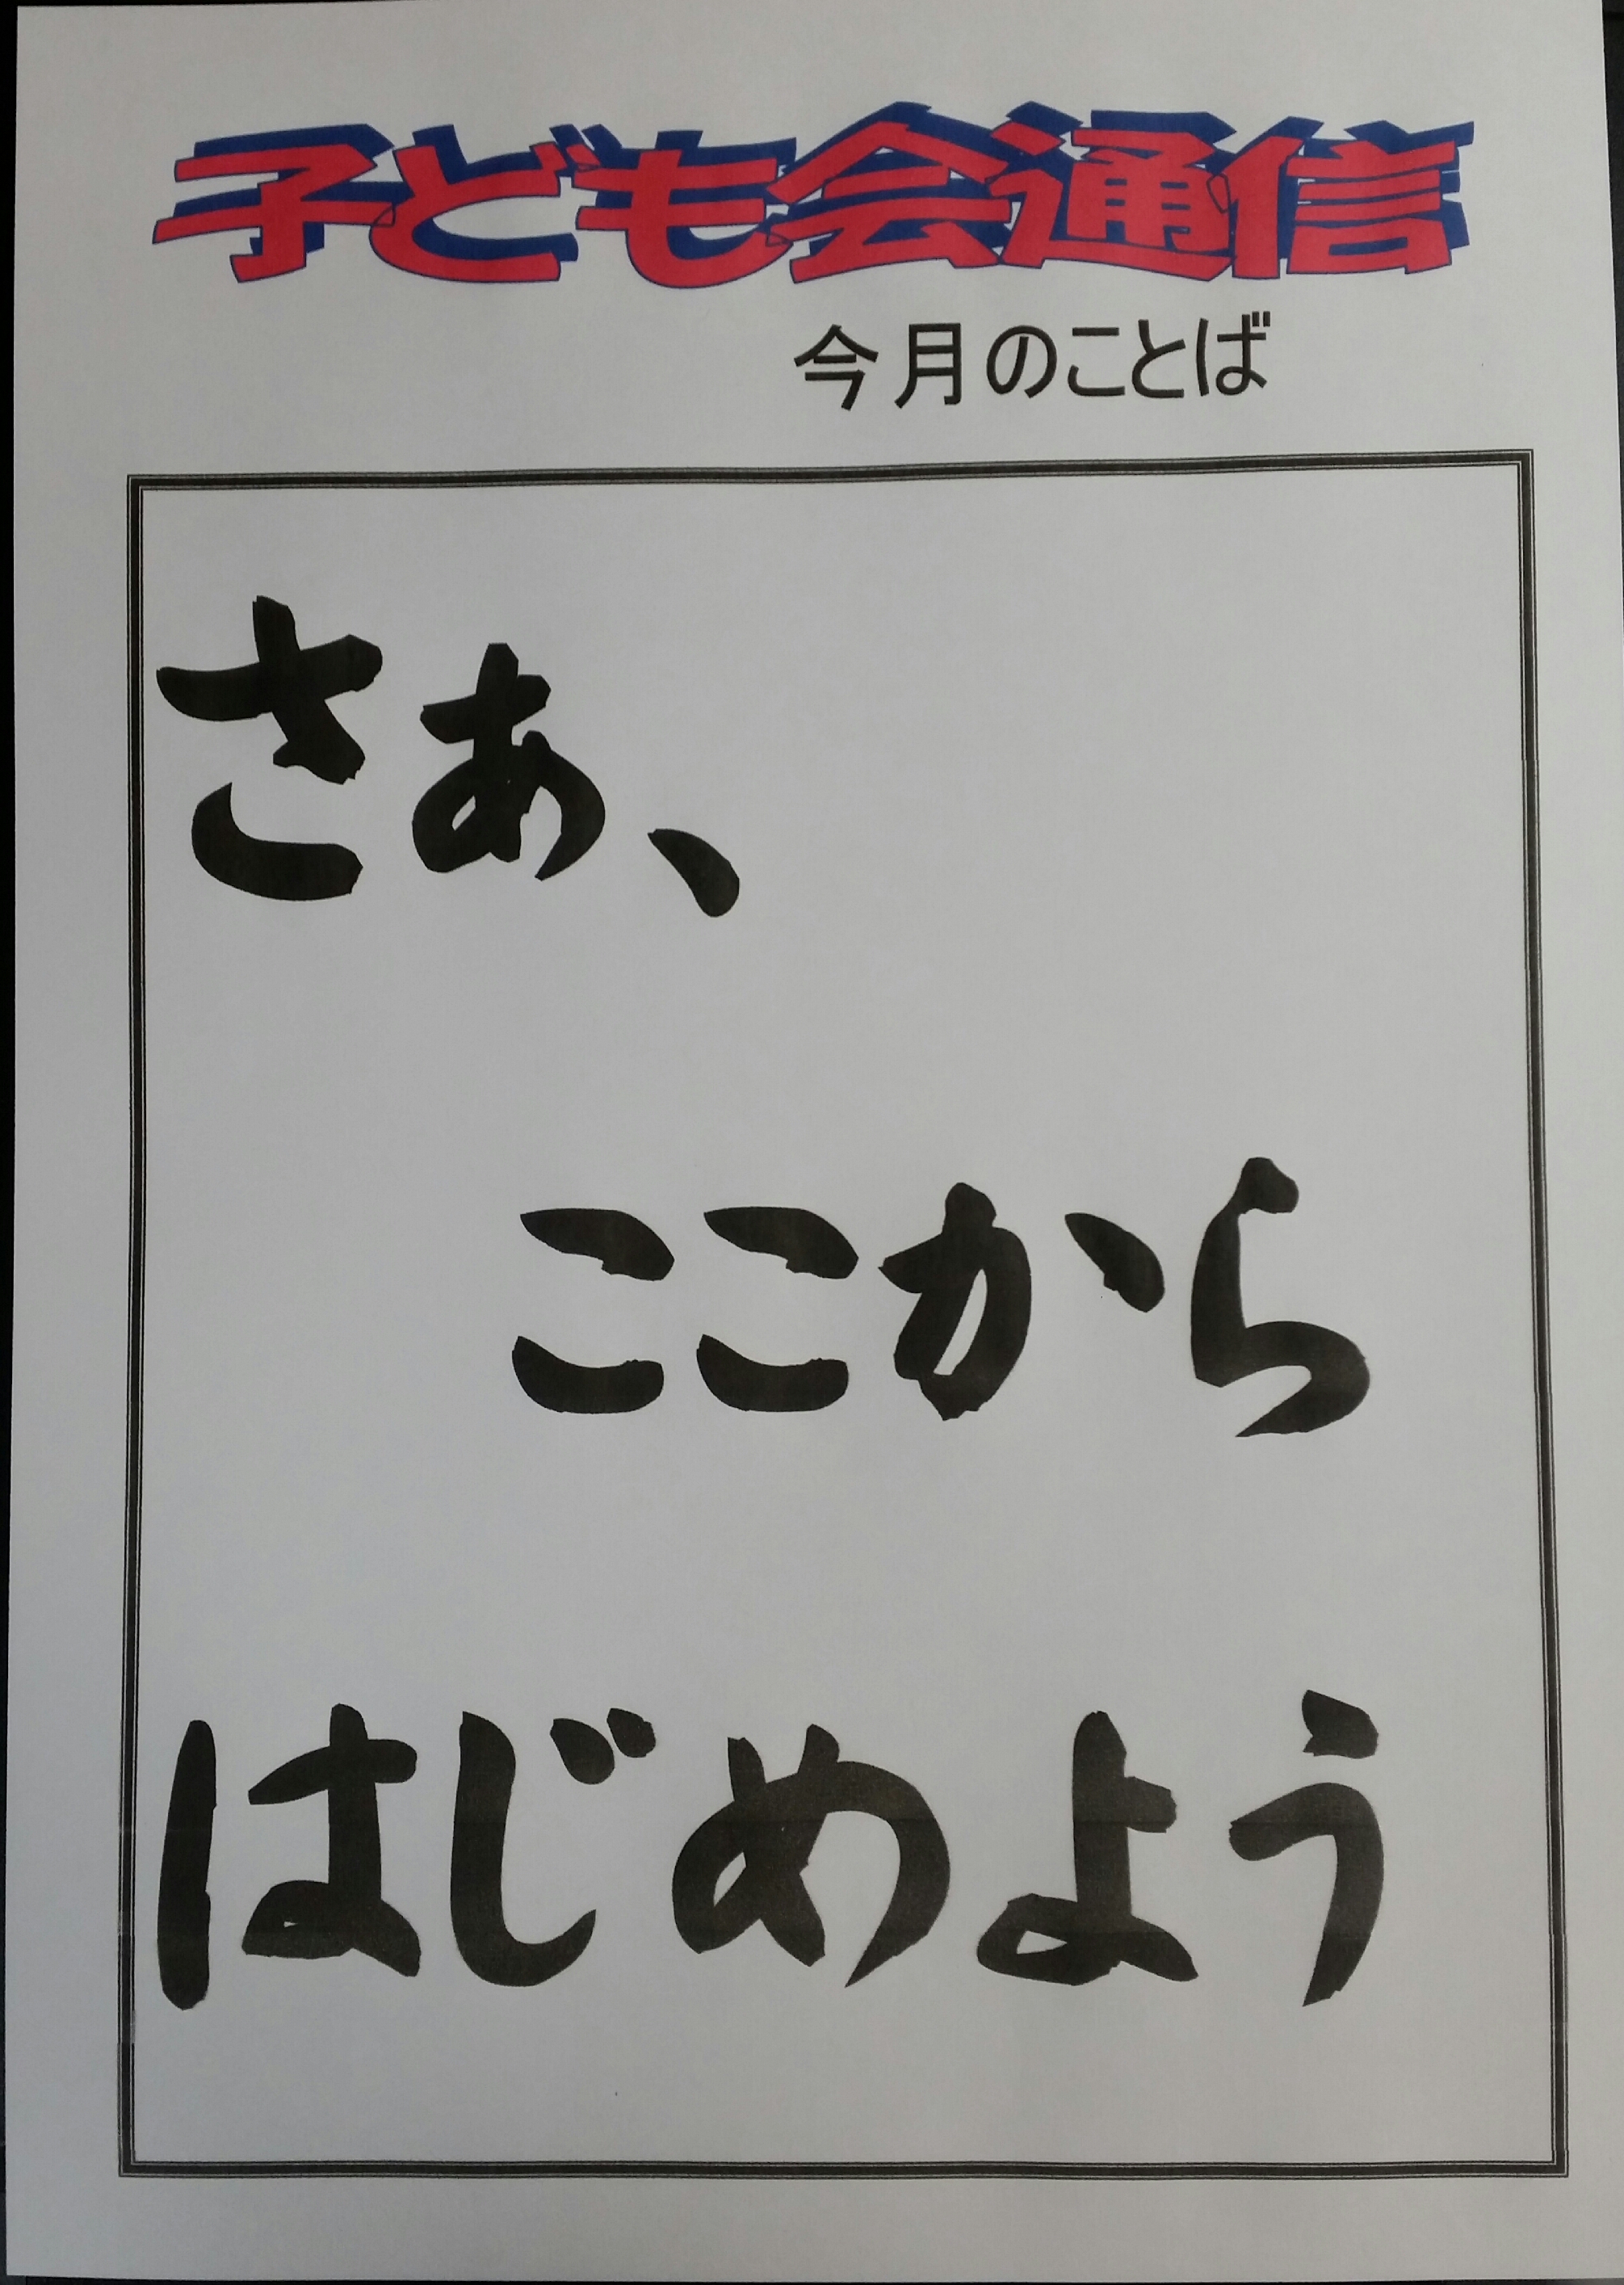 子ども会通信
今月のことば
さあ、
ここから
はじめよう